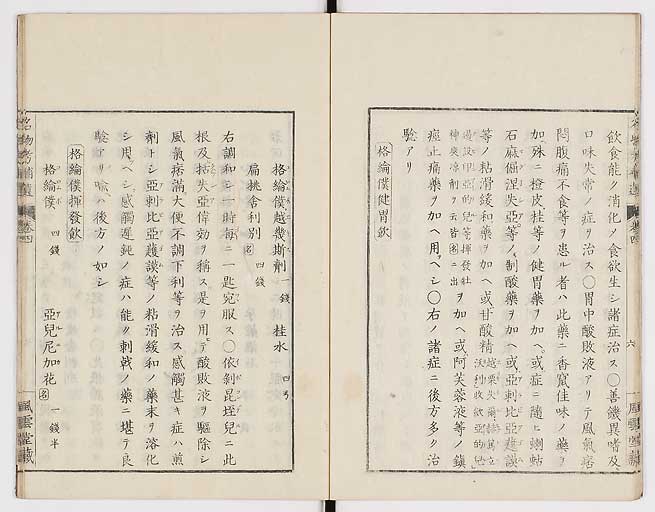 飲食能ク消化メ食欲生シ諸症治ス○善饑異嗜及
口味失常ノ症ヲ治ス○胃中酸敗液アリテ風氣痞
悶腹痛不食等ヲ患ル者ハ此藥ニ香竄佳味ノ藥ヲ
加殊ニ橙皮桂等ノ健胃藥ヲ加ヘ或症ニ隨ヒ蝲蛄
石麻倔涅失亞等ノ制酸藥ヲ加ヘ或亞剌比亞護謨
等ノ粘滑緩和藥ヲ加ヘ或甘酸精
ヲ加ヘ或阿芙蓉液等ノ鎮
痙止痛藥ヲ加ヘ用ヘシ○右ノ諸症ニ後方多ク治
驗アリ
格綸僕健胃飲
六
風雲堂藏
格綸僕越幾斯劑 一錢 桂水 四ヲ
扁桃舍利別 名 四錢
右調和シ一時每ニ一匙宛服ス○依剝昆垤兒ニ此
根及括失亞偉効ヲ稱ス是ヲ用テ酸敗液ヲ驅除シ
風氣痞滿大便不調下利等ヲ治ス感觸甚キ症ハ煎
劑トシ亞剌比亞護謨等ノ粘滑緩和ノ藥末ヲ溶化
シ用ヘシ感觸遲鈍ノ症ハ能ク刺戟ノ藥ニ堪テ良
驗アリ喩ハ後方ノ如シ
格綸僕揮發飲
格綸僕 四錢 亞兒尼加花 名 一錢半
名物考補遺 卷四
風雲堂藏